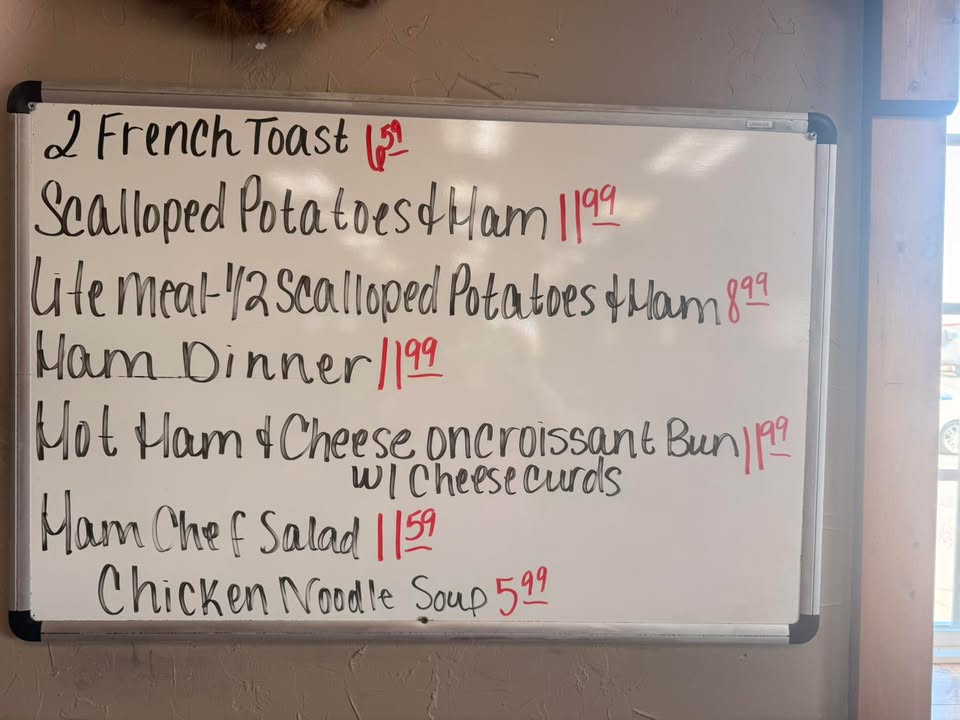 2 French Toast 6.59
Scalloped Potatoes & Ham 11.99
Lite Meal - 1/2 Scalloped Potatoes & Ham 8.99
Ham Dinner 11.99
Hot Ham & Cheese on Croissant Bun 11.99
w/ Cheese Curds
Ham Chef Salad 11.59
Chicken Noodle Soup 5.99